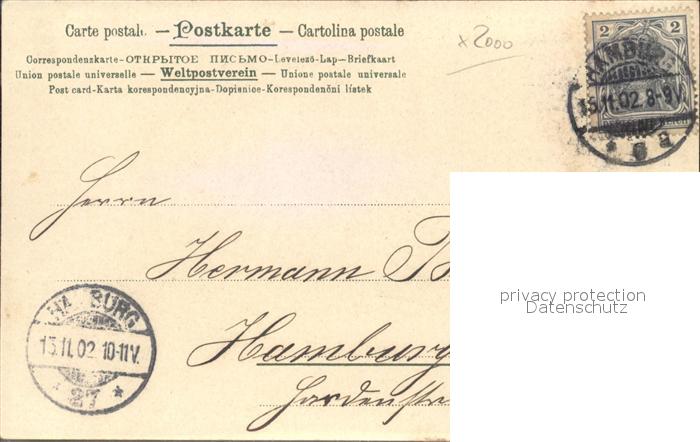 Carte postale. — Postkarte — Cartolina postale
Correspondenzkarte-ОТКРЫТОЕ ПИСЬМО-Levelező-Lap-Briefkaart
Union postale universelle — Weltpostverein — Unione postale universale
Post card-Karta korespondencyjna-Dopisnice-Korespondenční lístek
x 2000
2 2
HAMBURG
15.11.02. 8-9V.
REICH
* 6 a
Herrn
Hermann B
Hamburg
HAMBURG
15.11.02 10-11V.
* 27 *
privacy protection
Datenschutz